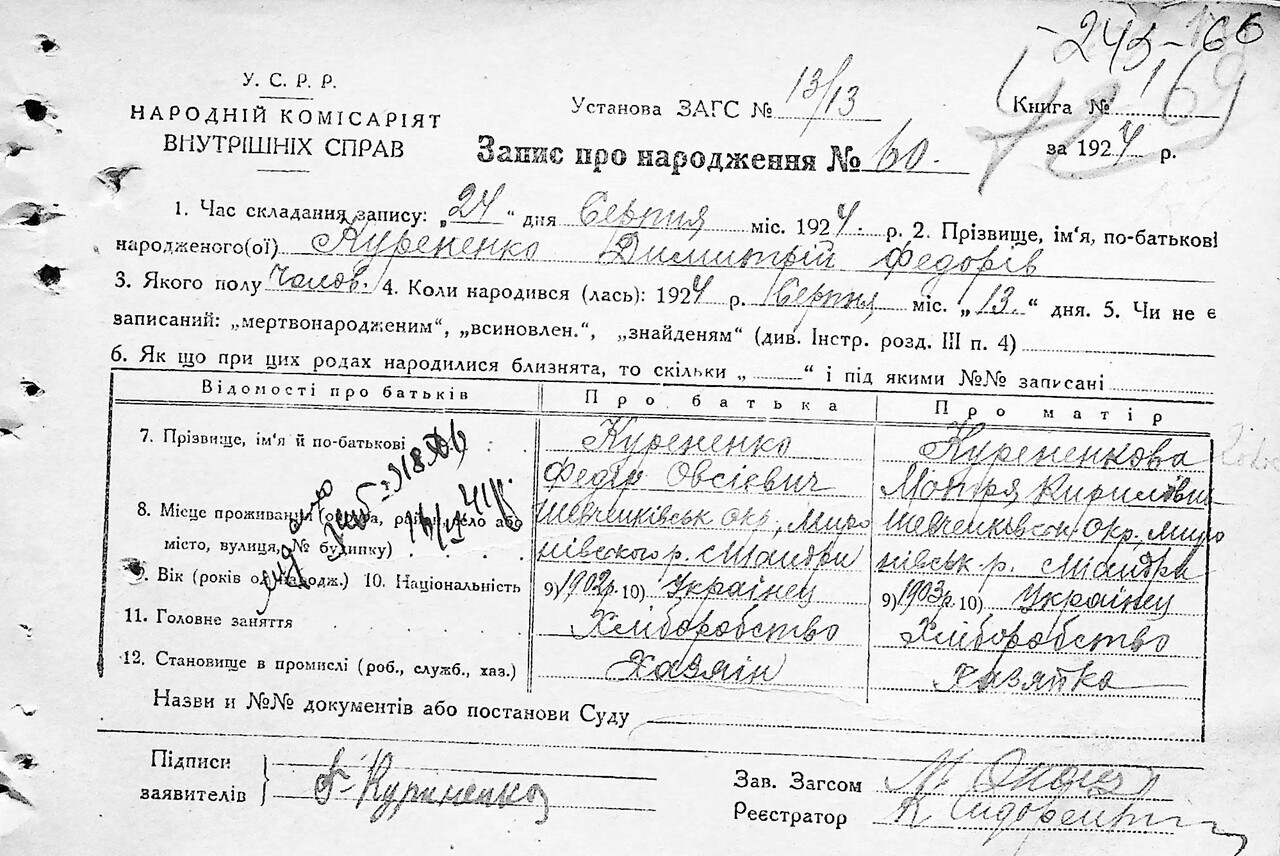 -243-66
У. С. Р. Р.
НАРОДНІЙ КОМІСАРІЯТ
ВНУТРІШНІХ СПРАВ
Установа ЗАГС № 13/13
Книга №
Запис про народження № 60.
за 1924 р.
1. Час складання запису: „24“ дня Серпня міс. 1924. р. 2. Прізвище, ім'я, по-батькові
народженого(ої) Курененко Димитрій Федорів
3. Якого полу чолов. 4. Коли народився (лась): 1924 р. Серпня міс. „13.“ дня. 5. Чи не є
записаний: „мертвонародженим“, „всиновлен.“, „знайденям“ (див. Інстр. розд. III п. 4)
6. Як що при цих родах народилися близнята, то скільки „ “ і під якими №№ записані
Відомості про батьків Про батька Про матір
7. Прізвище, ім'я й по-батькові Курененко Курененкова
Федір Овсієвич Мотря Кириловна
8. Місце проживання (округа, район, село або Шевченківськ окр, Миро Шевченківськ Окр. Миро
місто, вулиця, № будинку) нівского р. нівськ. р.
9. Вік (років од народж.) 10. Національність 9) 1902р. 10) Українец 9) 1903р. 10) Українец
11. Головне заняття Хліборобство Хліборобство
12. Становище в промислі (роб., служб., хаз.) Хазяїн Хазяйка
Назви и №№ документів або постанови Суду
Підписи
заявителів Ф. Куриненко
Зав. Загсом
Реєстратор К Сидоренко